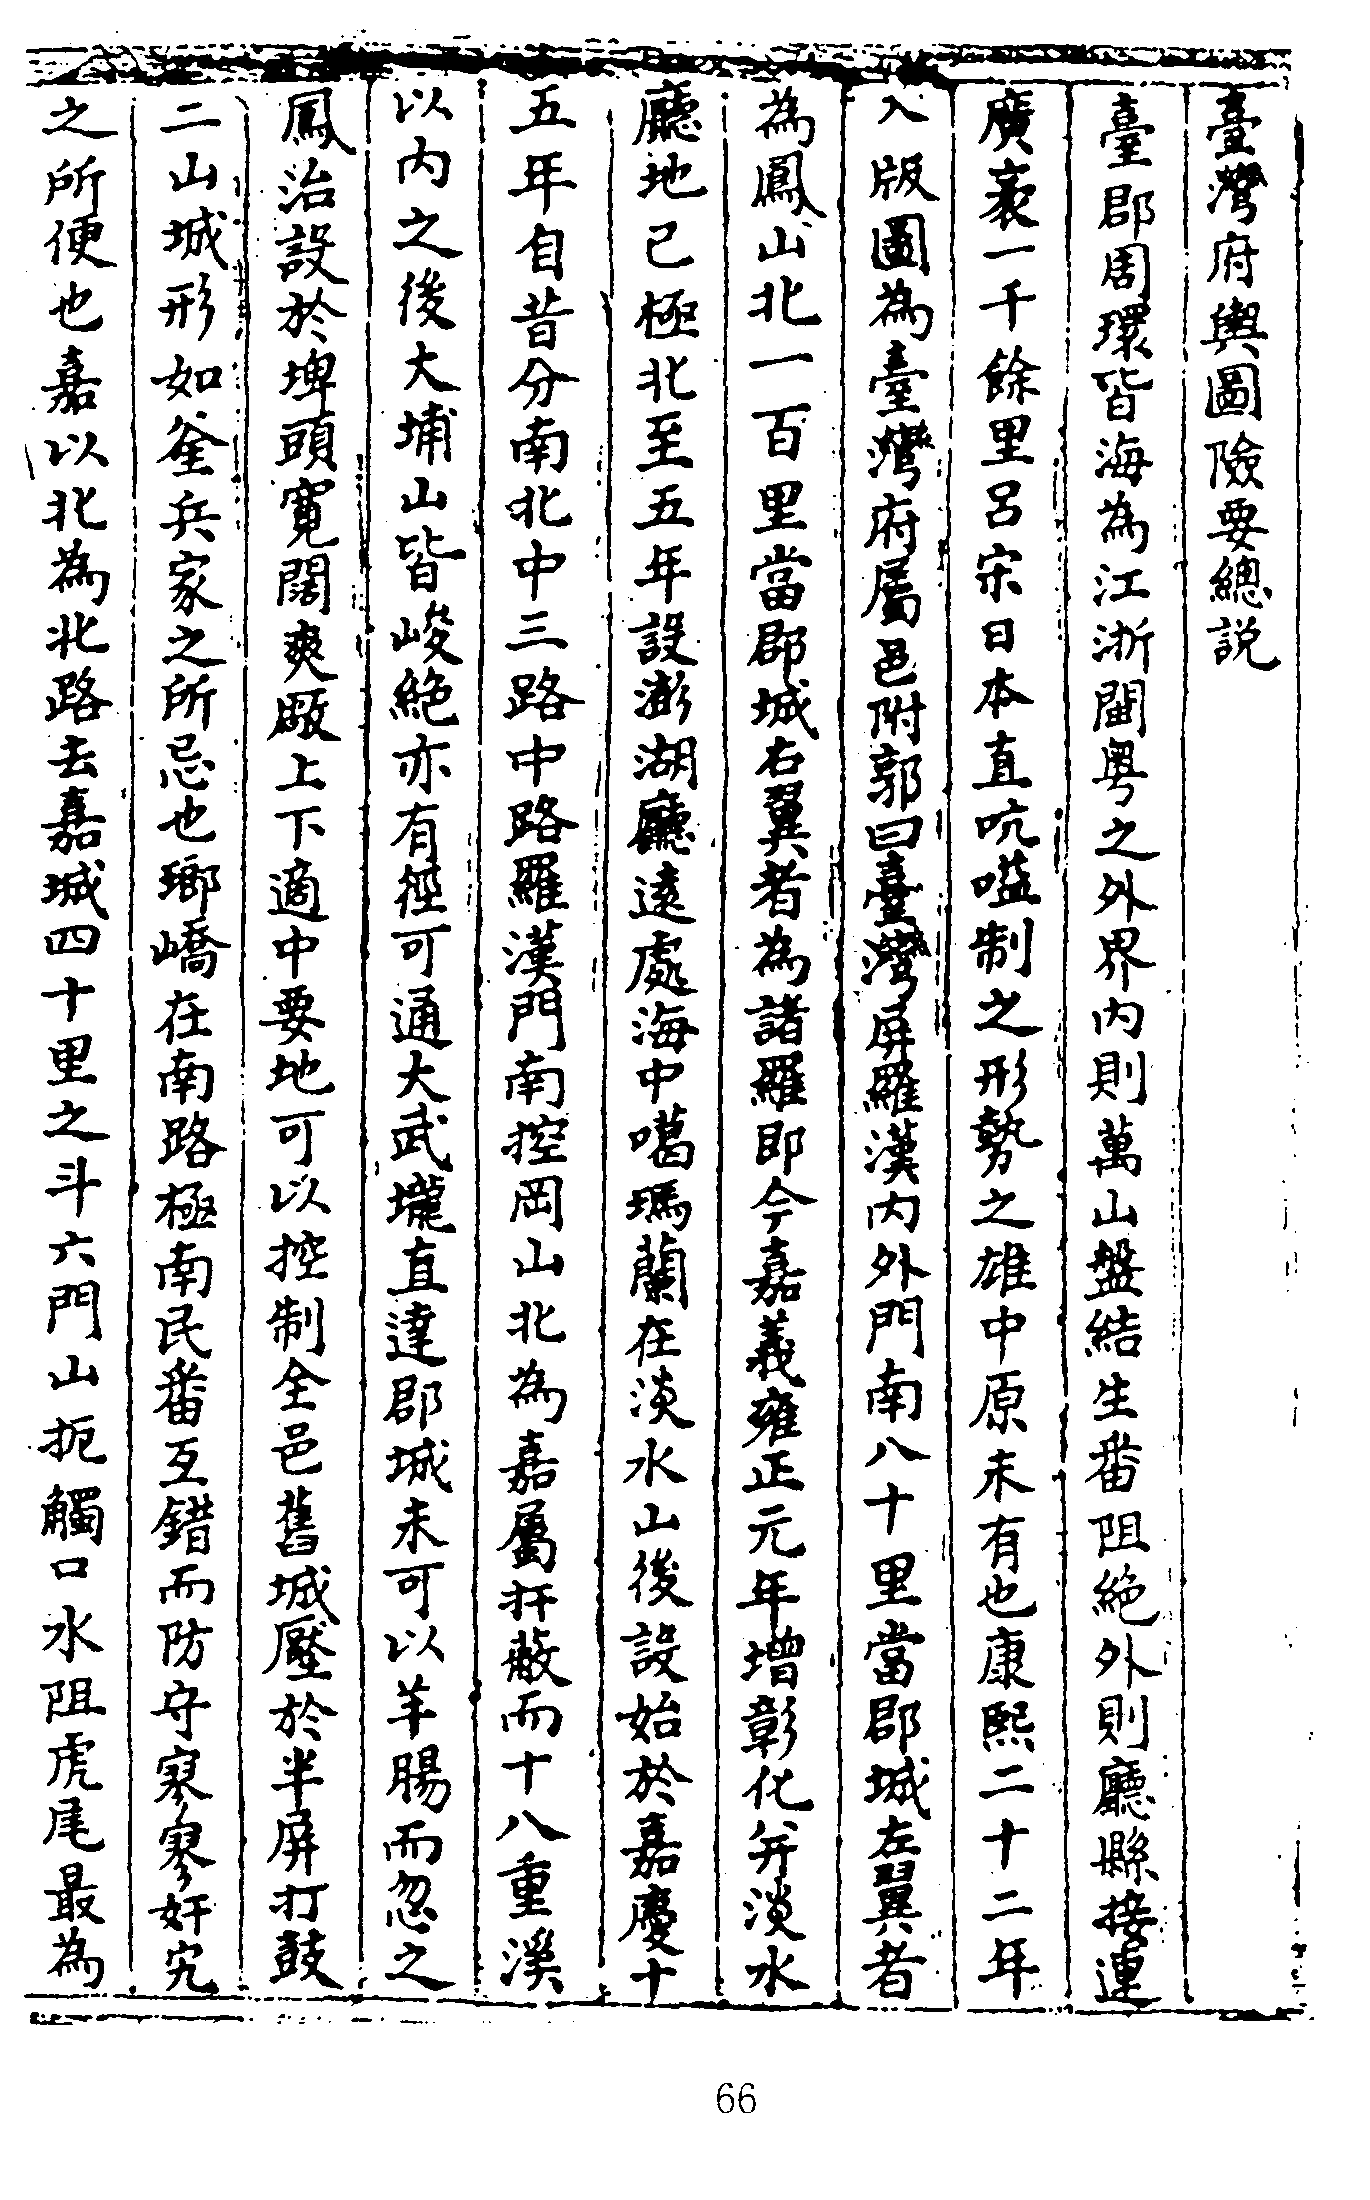 臺灣府輿圖險要總説
臺郡周環皆海為江浙閩粤之外界内則萬山盤結生番阻絶外則廳縣接連
廣袤一千餘里呂宋日本直吭嗌制之形勢之雄中原未有也康熙二十二年
入版圖為臺灣府屬邑附郭曰臺灣屏羅漢内外門南八十里當郡城左翼者
為鳳山北一百里當郡城右翼者為諸羅即今嘉義雍正元年增彰化并淡水
廳地已極北至五年設澎湖廳遠處海中噶瑪蘭在淡水山後設始於嘉慶十
五年自昔分南北中三路中路羅漢門南控岡山北為嘉屬扞蔽而十八重溪
以内之後大埔山皆峻絶亦有徑可通大武壠直達郡城未可以羊腸而忽之
鳳治設於埤頭寛闊爽厰上下適中要地可以控制全邑舊城壓於半屏打鼓
二山城形如釜兵家之所忌也瑯嶠在南路極南民番互錯而防守寥寥奸宄
之所便也嘉以北為北路去嘉城四十里之斗六門山扼觸口水阻虎尾最為
66